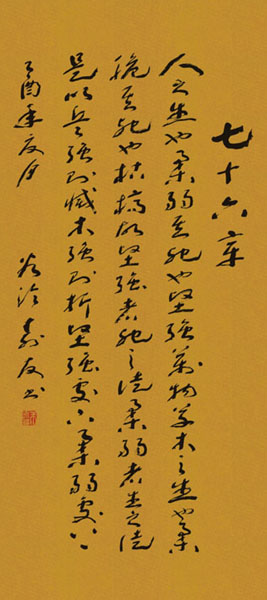 七十六章
人之生也柔弱其死也堅强萬物草木之生也柔
脆其死也枯槁故堅强者死之徒柔弱者生之徒
是以兵强則滅木强則折堅强處下柔弱處上
乙酉年夏月
书